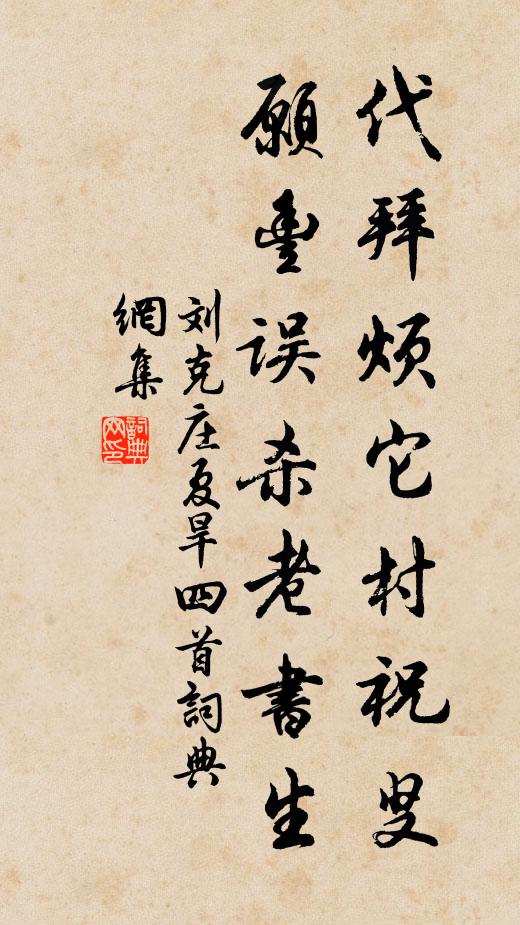 代拜烦它村祝叟
愿豊误杀老书生
刘克庄夏旱四首詞典
網集
詞典
网印